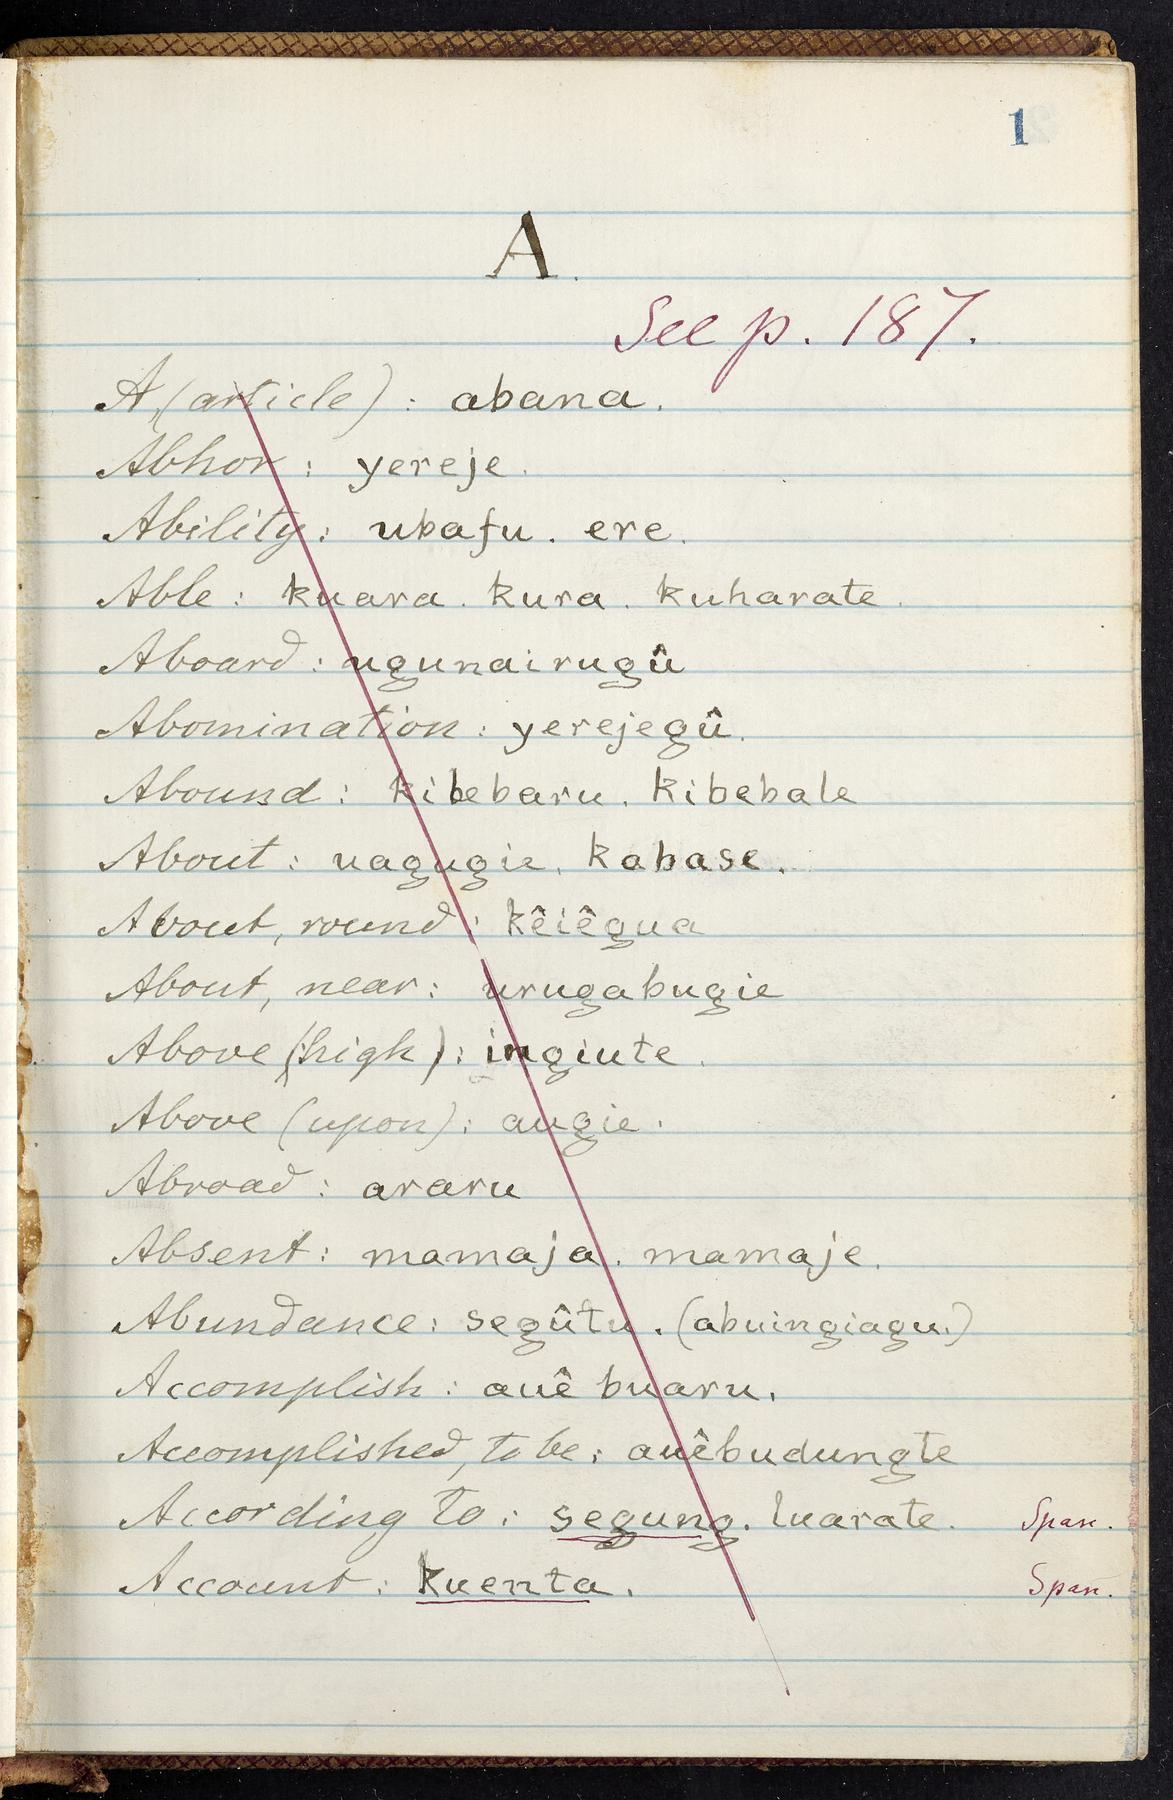 1
A.
See p. 187.
A (article) : abana.
Abhor : yereje.
Ability : ubafu. ere.
Able : kuara. kura. kuharate.
Aboard : ugunairugû
Abomination : yerejegû.
Abound : kibebaru. kibebale
About : uagugie. kabase.
About, round : kêiêgua
About, near : urugabugie
Above (high) : ingiute.
Above (upon) : augie.
Abroad : araru
Absent : mamaja. mamaje.
Abundance : segûtu. (abuingiagu.)
Accomplish : auê buaru.
Accomplished, to be : auêbudungte
According to : segung. luarate. Span.
Account : kuenta. Span.